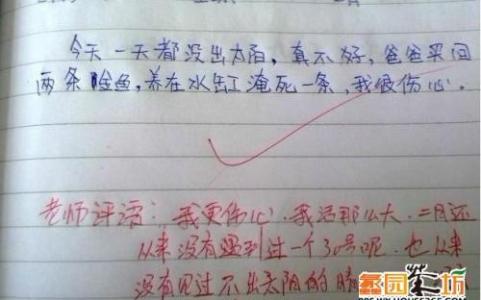 今天一天都没出太阳，真不好，爸爸买回
两条鲶鱼，养在水缸淹死一条，我很伤心.
老师评语：我更伤心.我活那么大.二月还
从来没有遇到过一个30号呢.也从来
没有见过不出太阳的晴
荔园茶坊